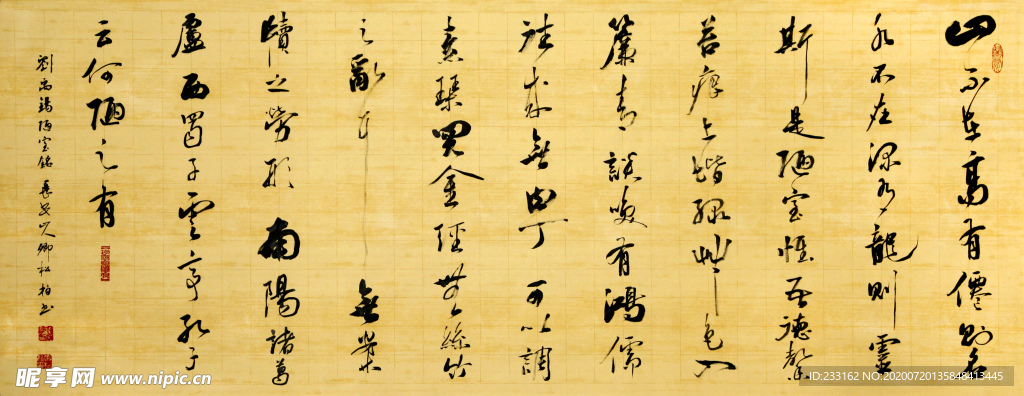 山不在高有僊則名
水不在深有龍則靈
斯是陋室惟吾德馨
苔痕上階綠艸色入
簾青談笑有鴻儒
往來無白丁可以調
素琴閱金經無絲竹
之亂耳無案
牘之勞形南陽諸葛
廬西蜀子雲亭孔子
云何陋之有
劉禹錫陋室銘
昵享网 www.nipic.cn
ID:233162 NO:20200720135848413445